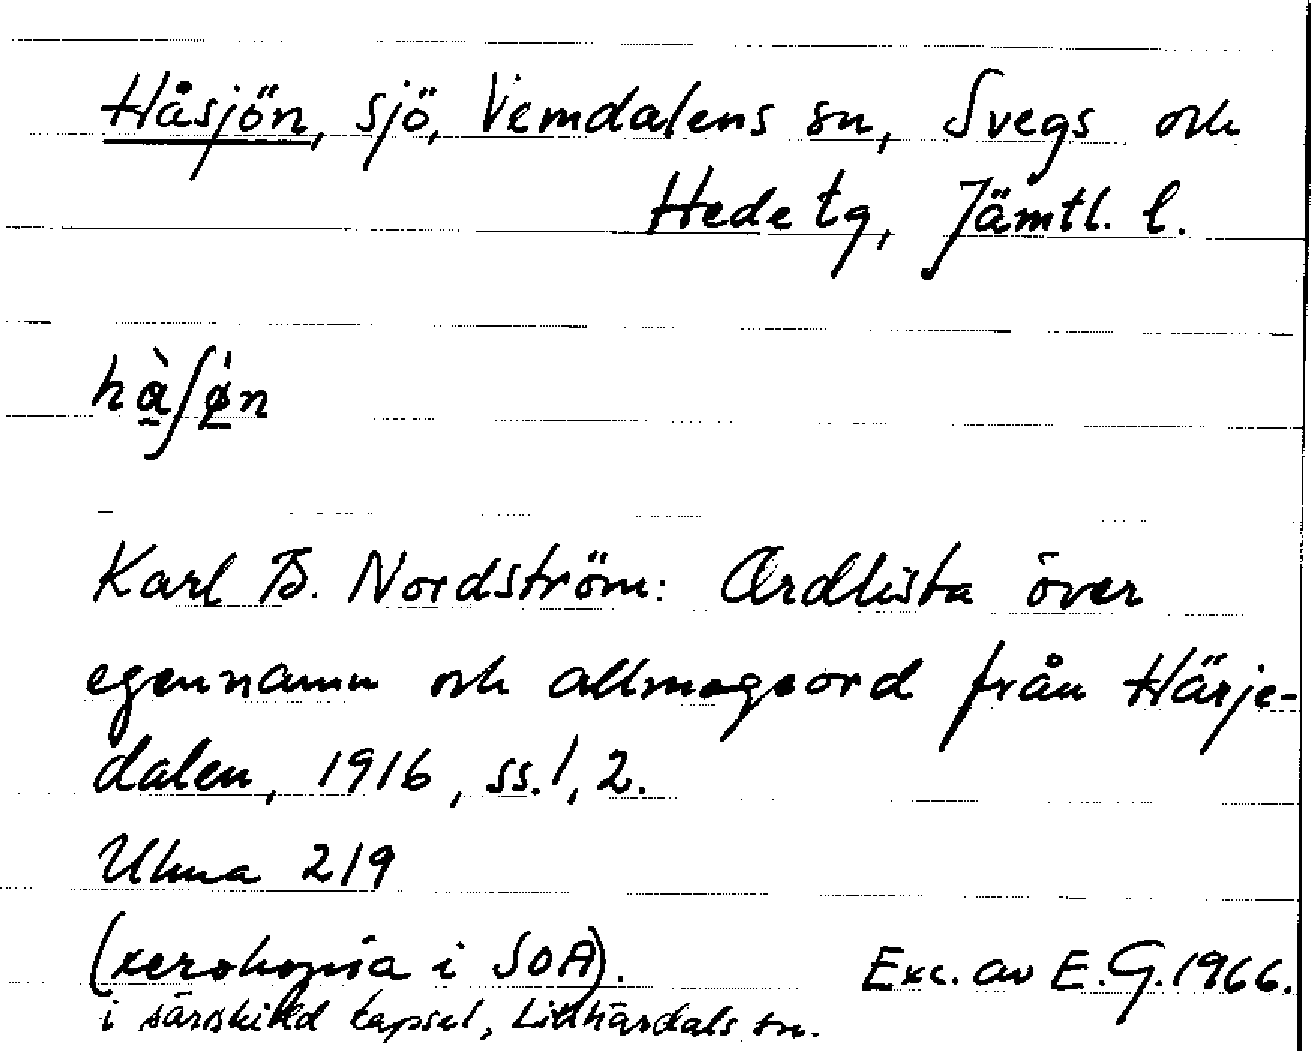 Håsjön, sjö, Vemdalens sn, Svegs och
Hede tg, Jämtl. l.
hà̱ʃø̱̀n
Karl B. Nordström: Ordlista över
egennamn och allmogeord från Härje-
dalen, 1916, ss. 1, 2.
Ulma 219
(xerokopia i SOA). Exc. av E.G. 1966.
i särskild kapsel, Lillhärdals sn.